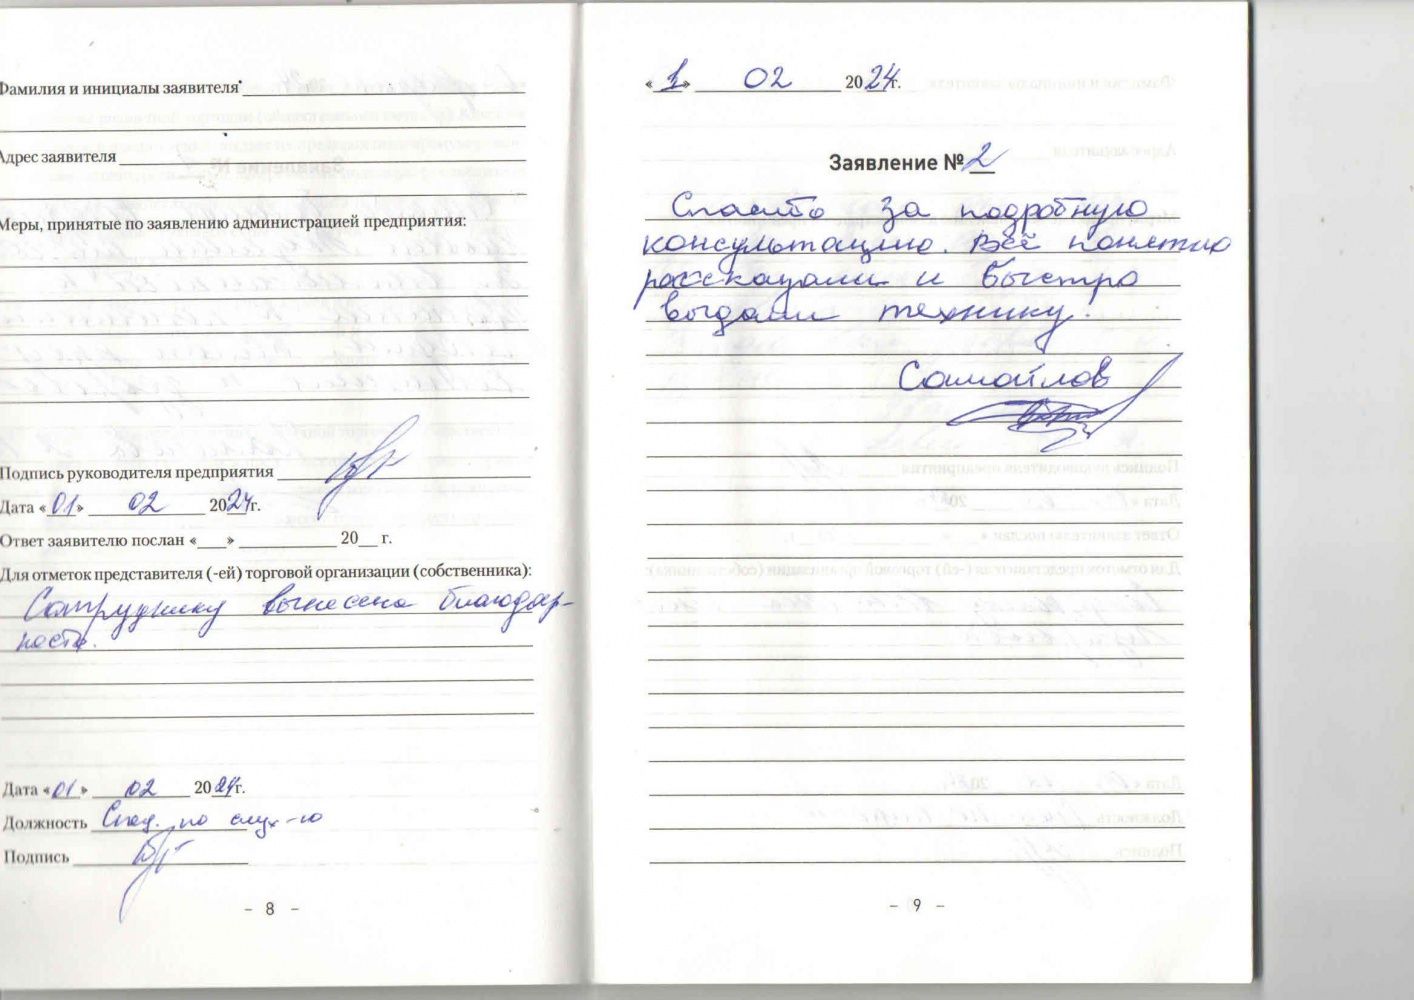 Фамилия и инициалы заявителя
Адрес заявителя
Меры, принятые по заявлению администрацией предприятия:
Подпись руководителя предприятия
Дата «01» 02 2024г.
Ответ заявителю послан «__» 20__ г.
Для отметок представителя (-ей) торговой организации (собственника):
Сотруднику вынесена благодар-
ность.
Дата «01» 02 2024г.
Должность Спец. по
Подпись
- 8 -
«1» 02 2024г.
Заявление № 2
Спасибо за подробную
консультацию. Всё понятно
рассказали и быстро
выдали технику!
Самойлов
- 9 -